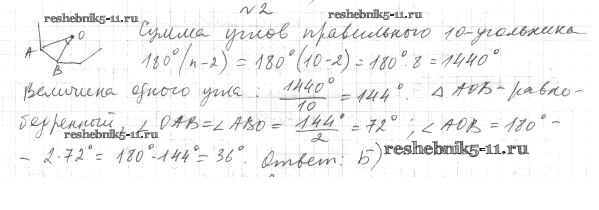 №2
reshebnik5-11.ru
reshebnik5-11.ru
Сумма углов правильного 10-угольника
O
A
B
180°(n-2) = 180°(10-2) = 180°·8 = 1440°
Величина одного угла: 1440°/10 = 144°. △AOB-равно-
бедренный, ∠OAB=∠ABO= 144°/2 = 72°; ∠AOB = 180°-
reshebnik5-11.ru
reshebnik5-11.ru
- 2·72° = 180°-144° = 36°. Ответ: Б)
reshebnik5-11.ru